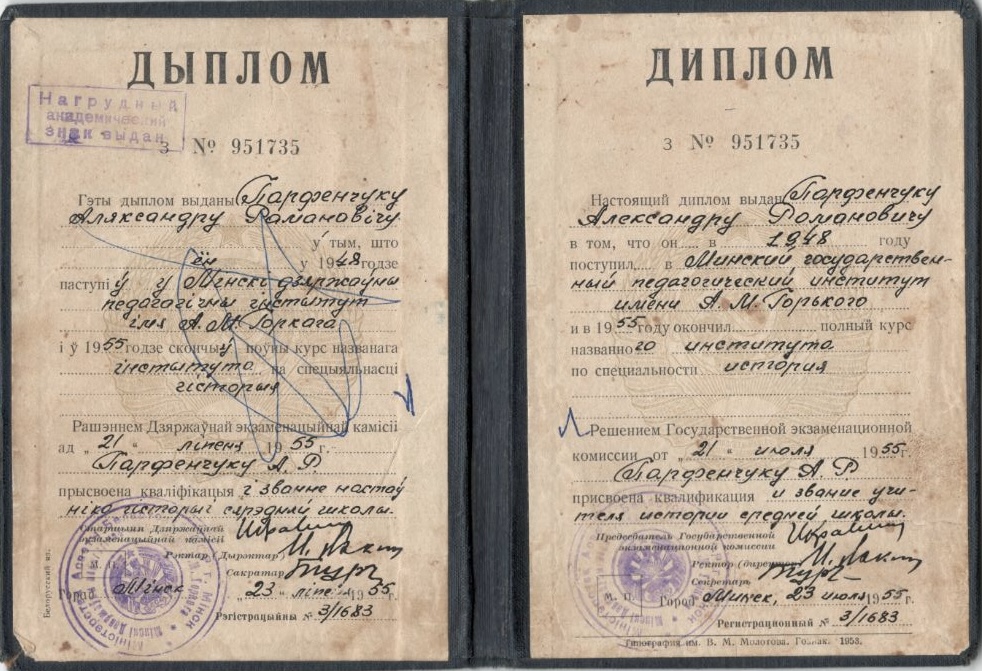 ДЫПЛОМ
Нагрудный
академический
знак выдан
З № 951735
Гэты дыплом выданы Парфенчуку
Аляксандру Рамановічу
ў тым, што
ён у 1948 годзе
паступіў у Мінскі дзяржаўны
педагагічны інстытут
імя А. М. Горкага
і ў 1955 годзе скончыў поўны курс названага
інстытута на спецыяльнасці
гісторыя
Рашэннем Дзяржаўнай экзаменацыйнай камісіі
ад „21“ ліпеня 1955 г.
Парфенчуку А. Р.
прысвоена кваліфікацыя і званне настаў
ніка гісторыі сярэдняй школы.
Старшыня Дзяржаўнай
экзаменацыйнай камісіі
Рэктар (Дырэктар)
Сакратар
М. П.
Город Мінск „23“ ліпеня 1955 г.
Рэгістрацыйны № 3/1683
Белорусский яз.
ДИПЛОМ
З № 951735
Настоящий диплом выдан Парфенчуку
Александру Романовичу
в том, что он в 1948 году
поступил в Минский государствен-
ный педагогический институт
имени А. М. Горького
и в 1955 году окончил полный курс
названного института
по специальности история
Решением Государственной экзаменационной
комиссии от „21“ июля 1955 г.
Парфенчуку А. Р.
присвоена квалификация и звание учи-
теля истории средней школы.
Председатель Государственной
экзаменационной комиссии
Ректор (директор)
Секретарь
М. П.
Город Минск, 23 июля 1955 г.
Регистрационный № 3/1683
Типография им. В. М. Молотова. Гознак. 1953.